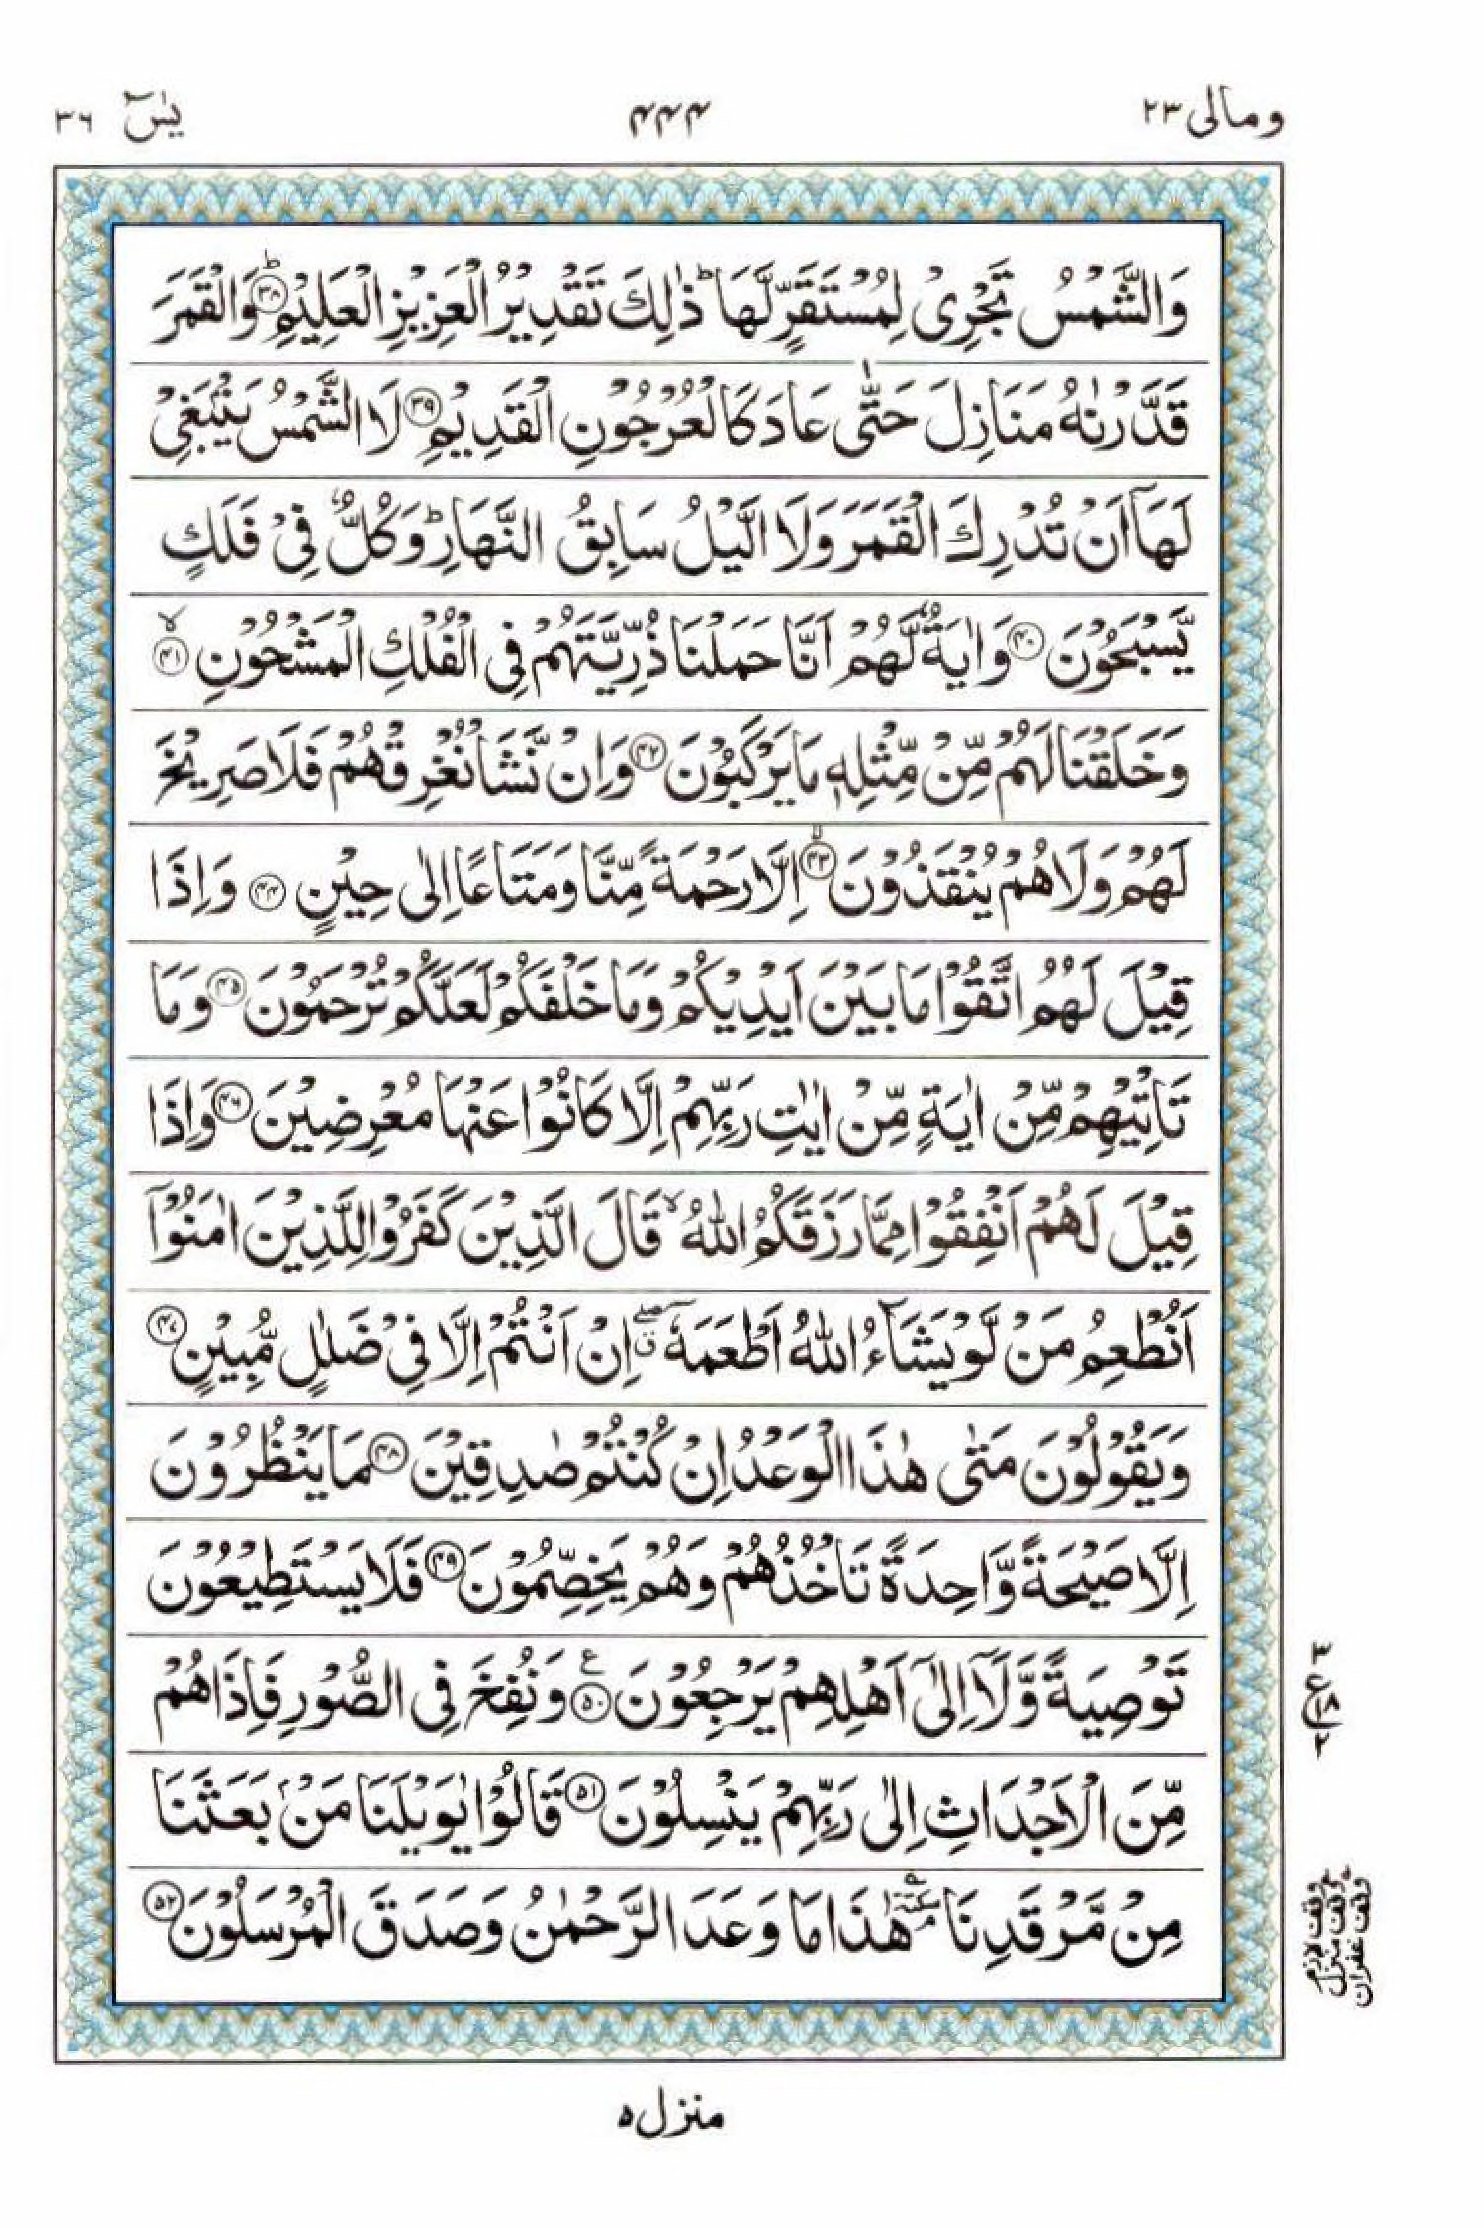 ومالی ۲۳
۴۴۴
یٰسٓ ۳۶
وَالشَّمْسُ تَجْرِیْ لِمُسْتَقَرٍّ لَّهَا ؕ ذٰلِكَ تَقْدِیْرُ الْعَزِیْزِ الْعَلِیْمِ ؕ﴿۳۸﴾ وَالْقَمَرَ
قَدَّرْنٰهُ مَنَازِلَ حَتّٰی عَادَ كَالْعُرْجُوْنِ الْقَدِیْمِ ﴿۳۹﴾ لَا الشَّمْسُ یَنْۢبَغِیْ
لَهَاۤ اَنْ تُدْرِكَ الْقَمَرَ وَلَا الَّیْلُ سَابِقُ النَّهَارِ ؕ وَكُلٌّ فِیْ فَلَكٍ
یَّسْبَحُوْنَ ﴿۴۰﴾ وَاٰیَةٌ لَّهُمْ اَنَّا حَمَلْنَا ذُرِّیَّتَهُمْ فِی الْفُلْكِ الْمَشْحُوْنِ ۙ﴿۴۱﴾
وَخَلَقْنَا لَهُمْ مِّنْ مِّثْلِهٖ مَا یَرْكَبُوْنَ ﴿۴۲﴾ وَاِنْ نَّشَاْ نُغْرِقْهُمْ فَلَا صَرِیْخَ
لَهُمْ وَلَا هُمْ یُنْقَذُوْنَ ۙ﴿۴۳﴾ اِلَّا رَحْمَةً مِّنَّا وَمَتَاعًا اِلٰی حِیْنٍ ﴿۴۴﴾ وَاِذَا
قِیْلَ لَهُمُ اتَّقُوْا مَا بَیْنَ اَیْدِیْكُمْ وَمَا خَلْفَكُمْ لَعَلَّكُمْ تُرْحَمُوْنَ ﴿۴۵﴾ وَمَا
تَاْتِیْهِمْ مِّنْ اٰیَةٍ مِّنْ اٰیٰتِ رَبِّهِمْ اِلَّا كَانُوْا عَنْهَا مُعْرِضِیْنَ ﴿۴۶﴾ وَاِذَا
قِیْلَ لَهُمْ اَنْفِقُوْا مِمَّا رَزَقَكُمُ اللّٰهُ ۙ قَالَ الَّذِیْنَ كَفَرُوْا لِلَّذِیْنَ اٰمَنُوْۤا
اَنُطْعِمُ مَنْ لَّوْ یَشَآءُ اللّٰهُ اَطْعَمَهٗۤ ۖۗ اِنْ اَنْتُمْ اِلَّا فِیْ ضَلٰلٍ مُّبِیْنٍ ﴿۴۷﴾
وَیَقُوْلُوْنَ مَتٰی هٰذَا الْوَعْدُ اِنْ كُنْتُمْ صٰدِقِیْنَ ﴿۴۸﴾ مَا یَنْظُرُوْنَ
اِلَّا صَیْحَةً وَّاحِدَةً تَاْخُذُهُمْ وَهُمْ یَخِصِّمُوْنَ ﴿۴۹﴾ فَلَا یَسْتَطِیْعُوْنَ
تَوْصِیَةً وَّلَاۤ اِلٰۤی اَهْلِهِمْ یَرْجِعُوْنَ ﴿۵۰﴾ع وَنُفِخَ فِی الصُّوْرِ فَاِذَا هُمْ
مِّنَ الْاَجْدَاثِ اِلٰی رَبِّهِمْ یَنْسِلُوْنَ ﴿۵۱﴾ قَالُوْا یٰوَیْلَنَا مَنْۢ بَعَثَنَا
مِنْ مَّرْقَدِنَا ٚۘ هٰذَا مَا وَعَدَ الرَّحْمٰنُ وَصَدَقَ الْمُرْسَلُوْنَ ﴿۵۲﴾
۳
ع ۱۸
۲
وقف لازم
وقف منزل
وقف غفران
منزل ۵